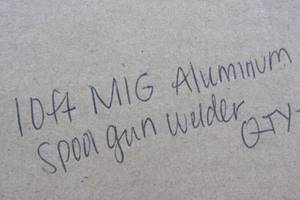 10ft MIG Aluminum
Spool gun welder
QTY-